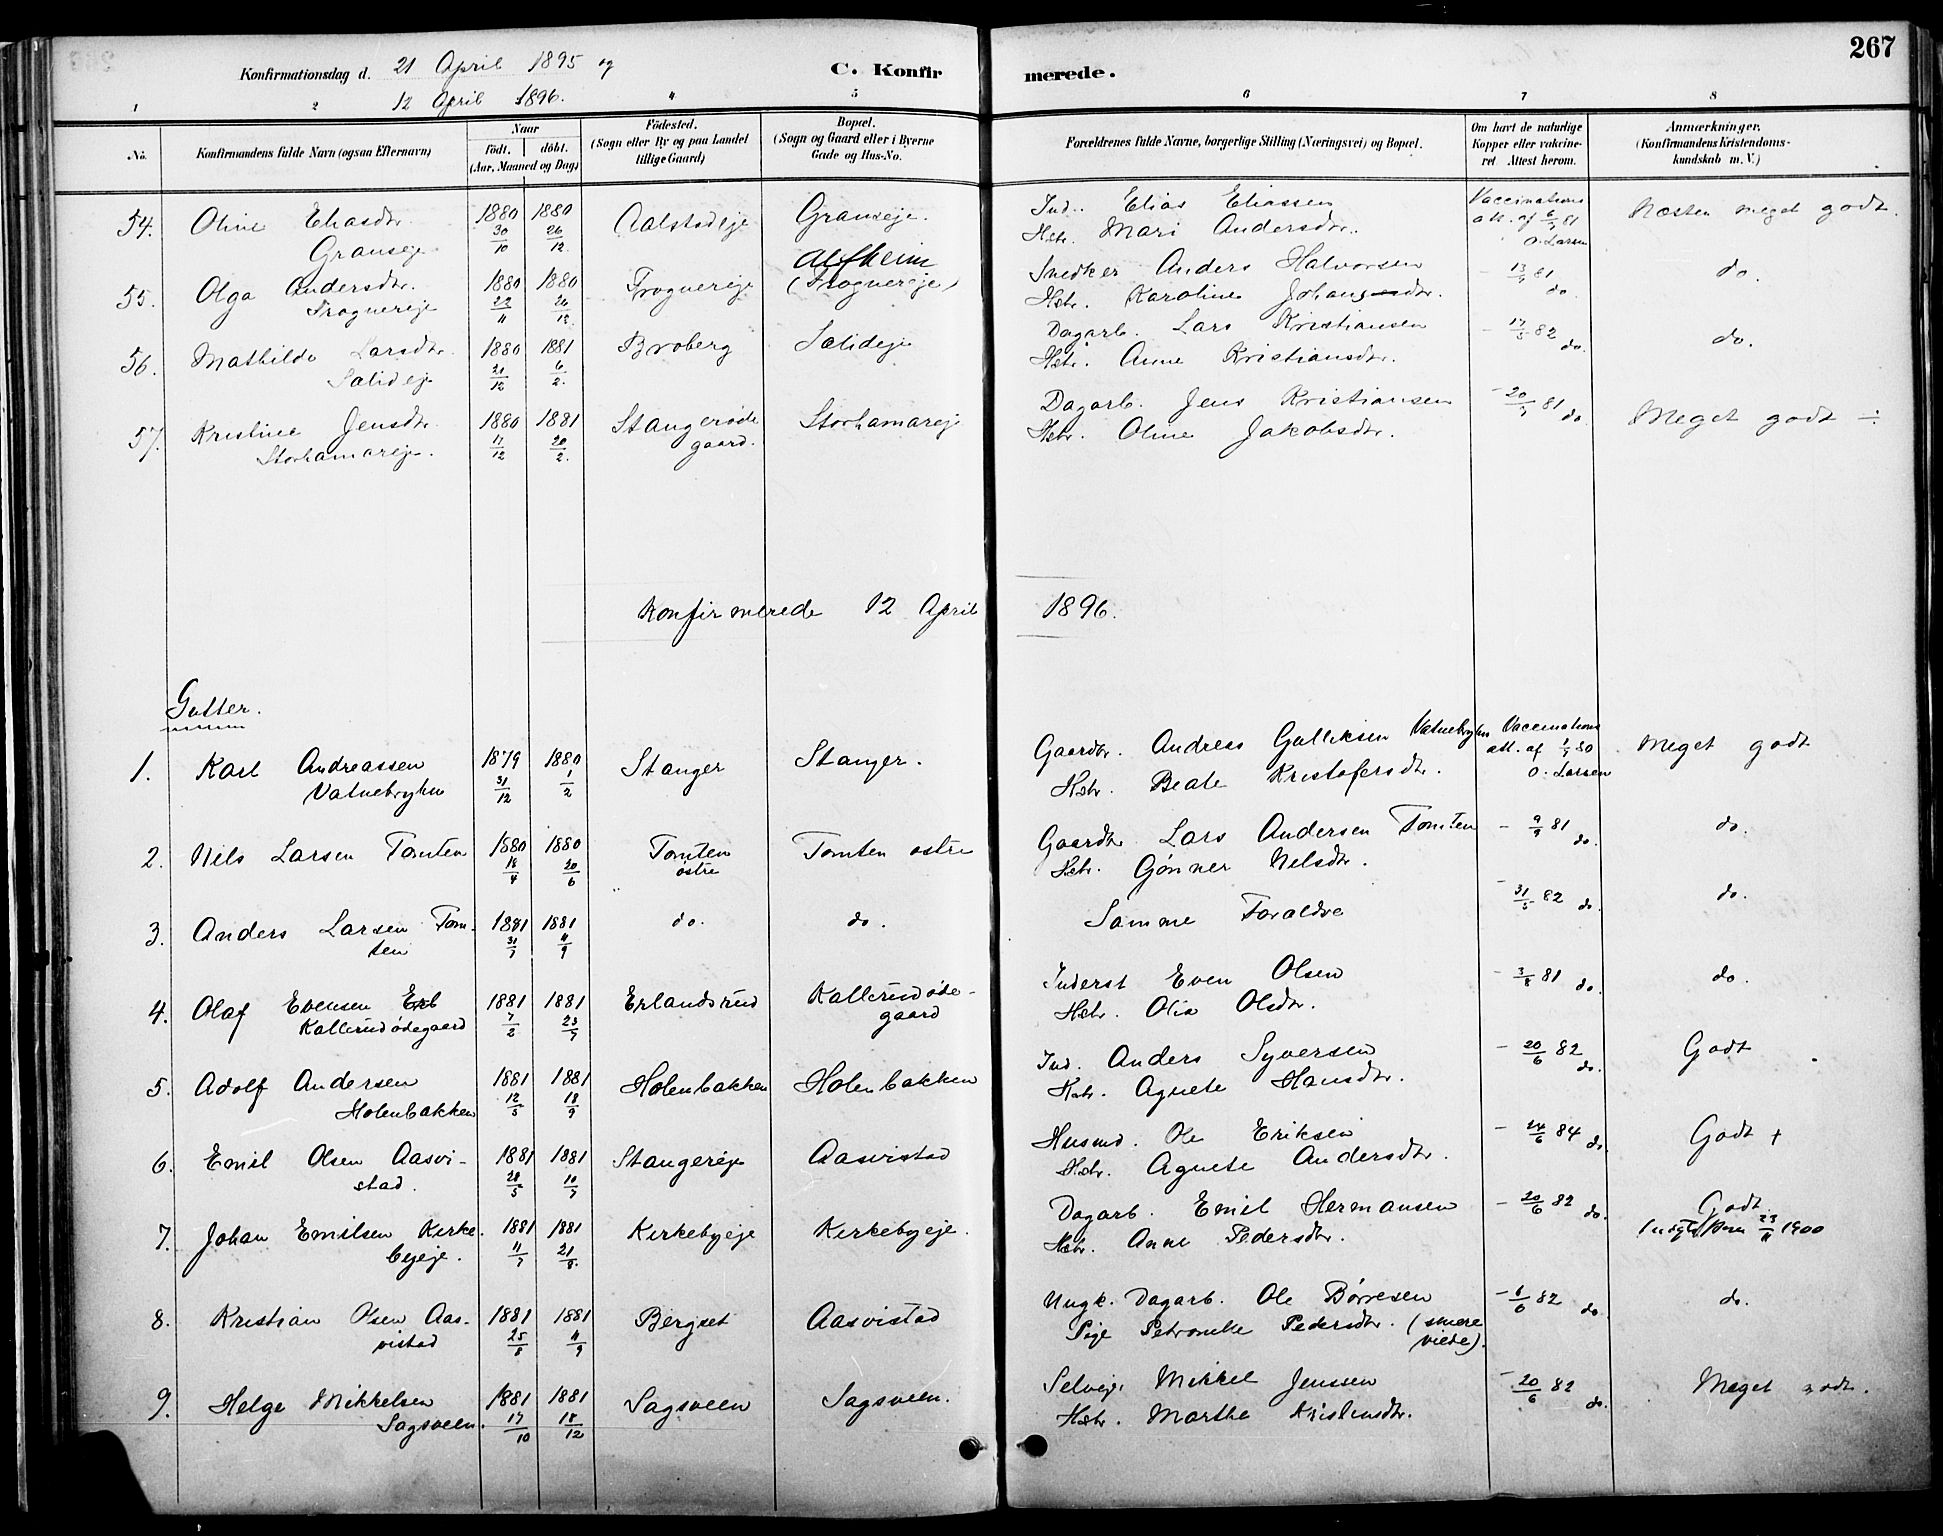 267
Konfirmationsdag d. 21 April 1895 og
12 April 1896.
C. Konfirmerede.
1 2 4 5 6 7 8
No. Konfirmandens fulde Navn (ogsaa Efternavn) Naar født. døbt. (Aar, Maaned og Dag) Fødested. (Sogn eller By og paa Landet tillige Gaard) Bopæl. (Sogn og Gaard eller i Byerne Gade og Hus-No. Forældrenes fulde Navne, borgerlige Stilling (Næringsvei) og Bopæl. Om havt de naturlige Kopper eller vakcineret Attest herom. Anmærkninger. (Konfirmandens Kristendomskundskab m. V.)
54. Oline Eliasdtr. 1880 1880 Aalstadeje Graneje. Ind. Elias Eliassen Vaccinations
Graneje 30/10 26/12 Hstr. Mari Andersdtr. att. af 6/7 81 O. Larsen Næsten meget godt.
55. Olga Andersdtr. 1880 1880 Frognereje Alfheim (Frognereje) Snedker Anders Halvorsen 13/7 81 do. do.
Frognereje 22/11 26/12 Hstr. Karoline Johansdtr.
56. Mathilde Larsdtr. 1880 1881 Broberg Salideje Dagarb. Lars Kristiansen - 17/5 82 do. do.
Salideje 21/12 6/2. Hstr. Anne Kristiansdtr.
57. Kristine Jensdtr. 1880 1881 Stangerøde Storhamareje Dagarb. Jens Kristiansen - 20/7 81 do. Meget godt ÷
Storhamareje. 17/12 20/2. gaard. Hstr. Oline Jakobsdtr.
Konfirmerede 12 April 1896.
Gutter.
1. Karl Andreassen 1879 1880 Stanger Stanger. Gaardbr. Andreas Gulliksen Vatnebryhn Vaccinations
Vatnebryhn 31/12 1/2 Hstr. Beate Kristofersdtr. att. af 1/7 80 O. Larsen Meget godt
2. Nils Larsen Tomten 1880 1880 Tomten Tomten østre Gaardbr Lars Andersen Tomten - 9/9 81 do. do.
18/4 20/6 østre Hstr. Gønner Nilsdtr.
3. Anders Larsen Tom- 1881 1881 do. do. Samme Forældre - 31/5 82 do. do.
ten 31/7 11/9
4. Olaf Evensen Erl 1881 1881 Erlandsrud Kallerudøde- Inderst Even Olsen - 3/8 81 do. do.
Kallerudødegaard 7/2 23/7 gaard Hstr. Olia Olsdtr.
5. Adolf Andersen 1881 1881 Holenbakken Holenbakken Ind. Anders Syversen - 20/6 82 do. Godt
Holenbakken 12/5 18/9 Hstr. Agnete Hansdtr.
6. Emil Olsen Aasvi- 1881 1881 Stangereje Aasvistad Husmd. Ole Eriksen - 14/6 84 do. Godt +
stad. 28/5 10/7 Hstr. Agnete Andersdtr.
7. Johan Emilsen Kirke- 1881 1881 Kirkebyeje Kirkebyeje. Dagarb. Emil Hermansen - 20/6 82 do. Godt.
byeje. 11/7 21/8. Hstr. Anne Pedersdtr. 23/11 1900
8. Kristian Olsen Aas- 1881 1881 Bergset Aasvistad Ungk. Dagarb. Ole Børresen - 6/6 82 do. do.
vistad 25/8 11/9 Pige Petronelle Pedersdtr. (senere viede).
9. Helge Mikkelsen 1881 1881 Sagsveen Sagsveen. Selvejr Mikkel Jenssen - 20/6 82 do. Meget godt.
Sagsveen. 17/10 18/12 Hstr. Marthe Kristensdtr.